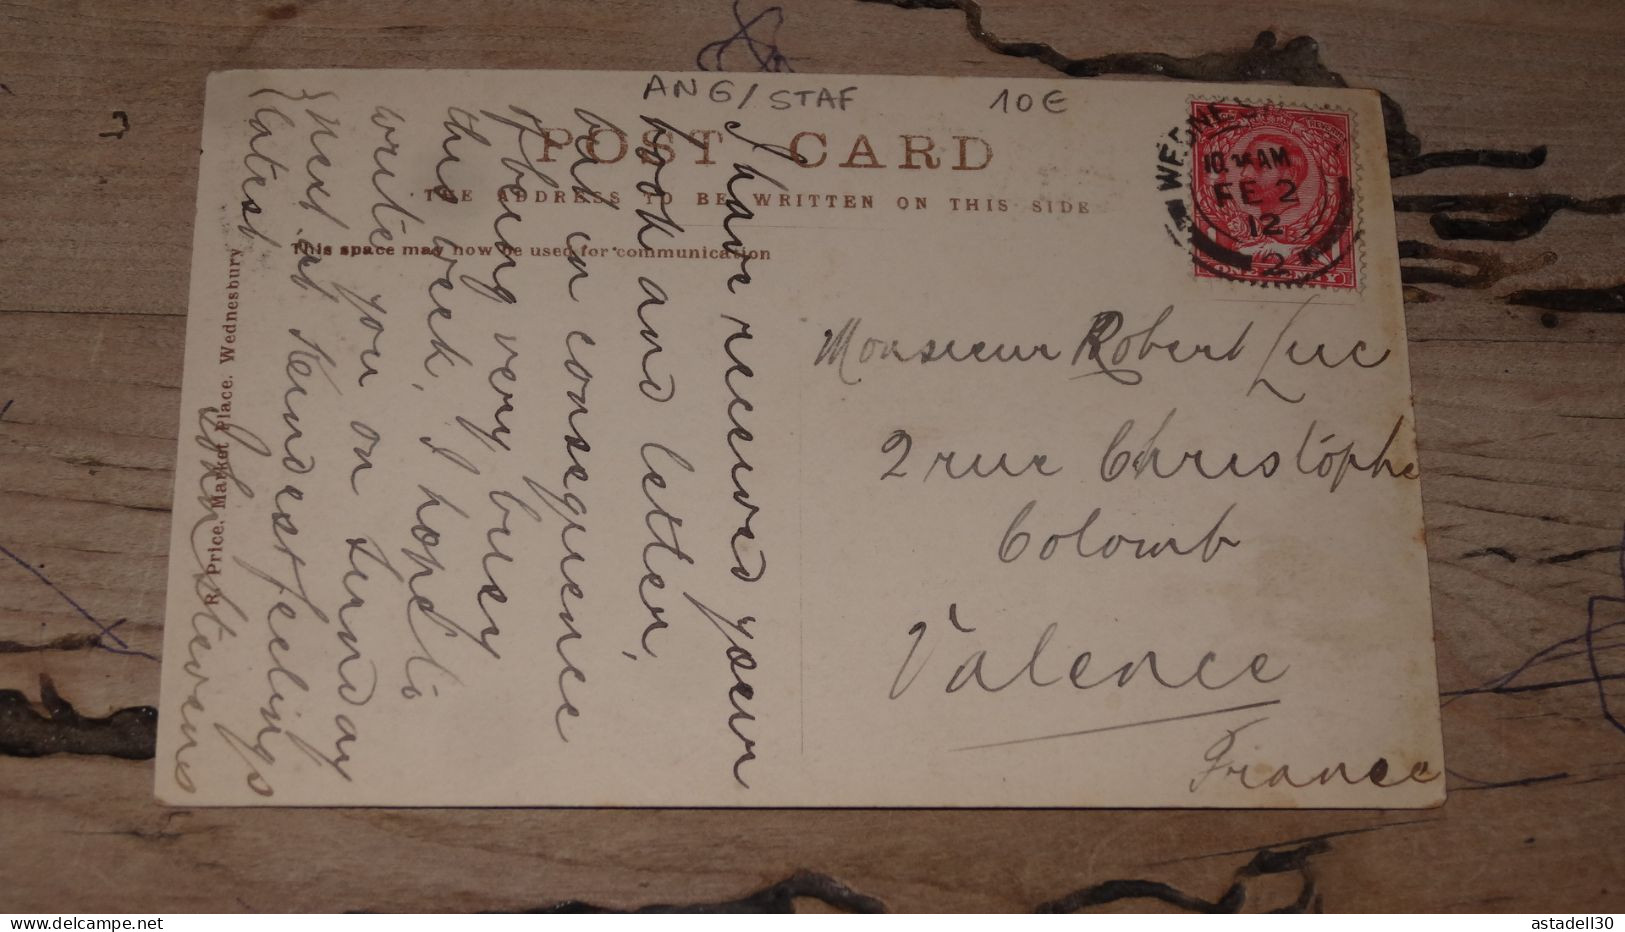 ANG/STAF 10€
POST CARD
THE ADDRESS TO BE WRITTEN ON THIS SIDE
This space may now be used for communication
R. Price, Market Place, Wednesbury
WEDNE
10.15AM
FE 2
12
2
ONE PENNY
REVENUE
Monsieur Robert Luc
2 rue Christophe
Colomb
Valence
France
I have received your
book and letter,
but in consequence
of being very busy
this week, I hope to
write you on Sunday
next at
latest
Kindest feelings
John Stevens
astadell30
delcampe.net